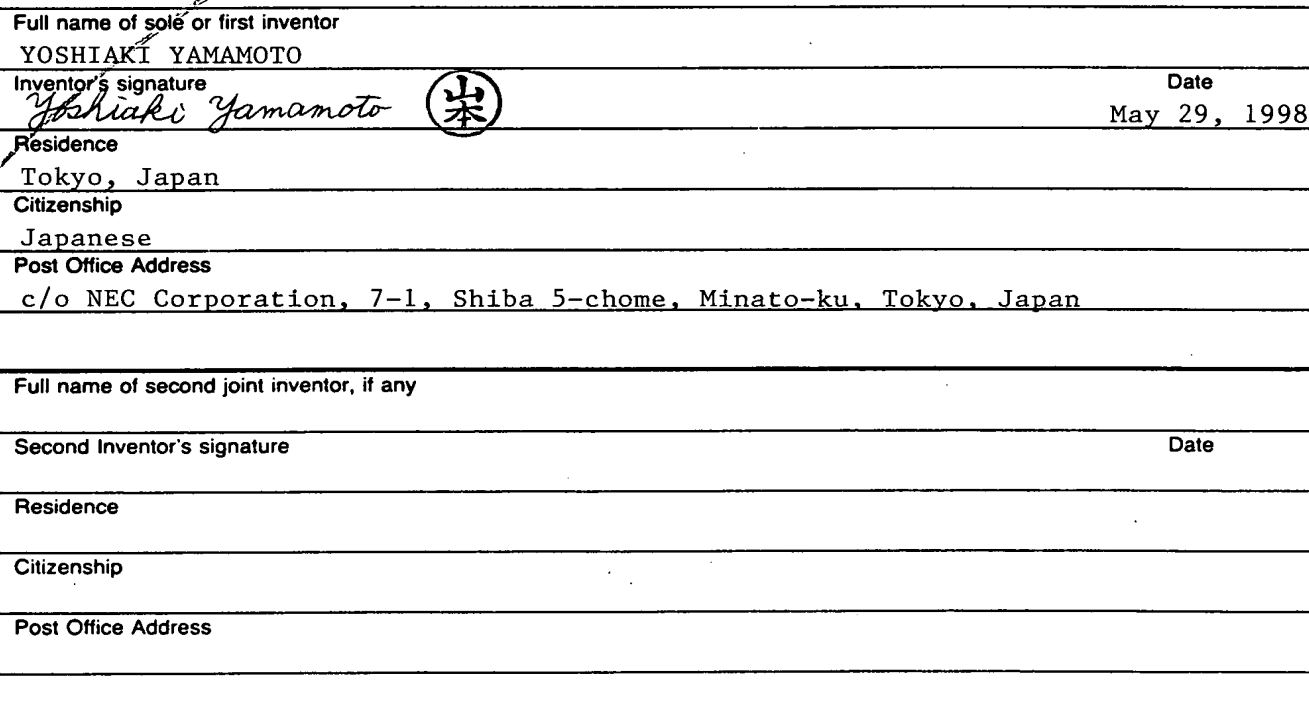 Full name of sole or first inventor
YOSHIAKI YAMAMOTO
Inventor's signature Date
Yoshiaki Yamamoto 山本 May 29, 1998
Residence
Tokyo, Japan
Citizenship
Japanese
Post Office Address
c/o NEC Corporation, 7-1, Shiba 5-chome, Minato-ku, Tokyo, Japan
Full name of second joint inventor, if any
Second Inventor's signature Date
Residence
Citizenship
Post Office Address